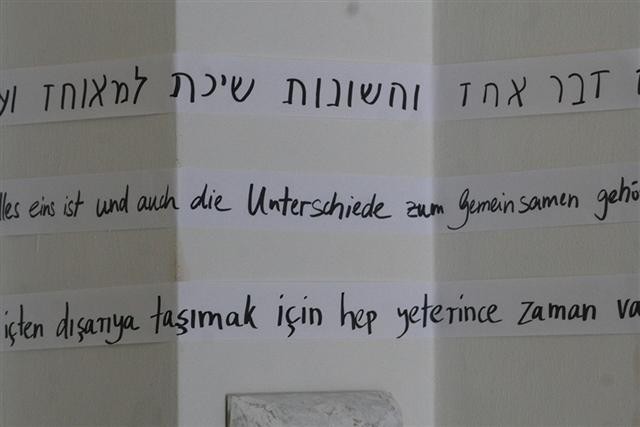 דבר אחד והשונות שיכת למאוחד
lles eins ist und auch die Unterschiede zum Gemeinsamen gehö
içten dışarıya taşımak için hep yeterince zaman va